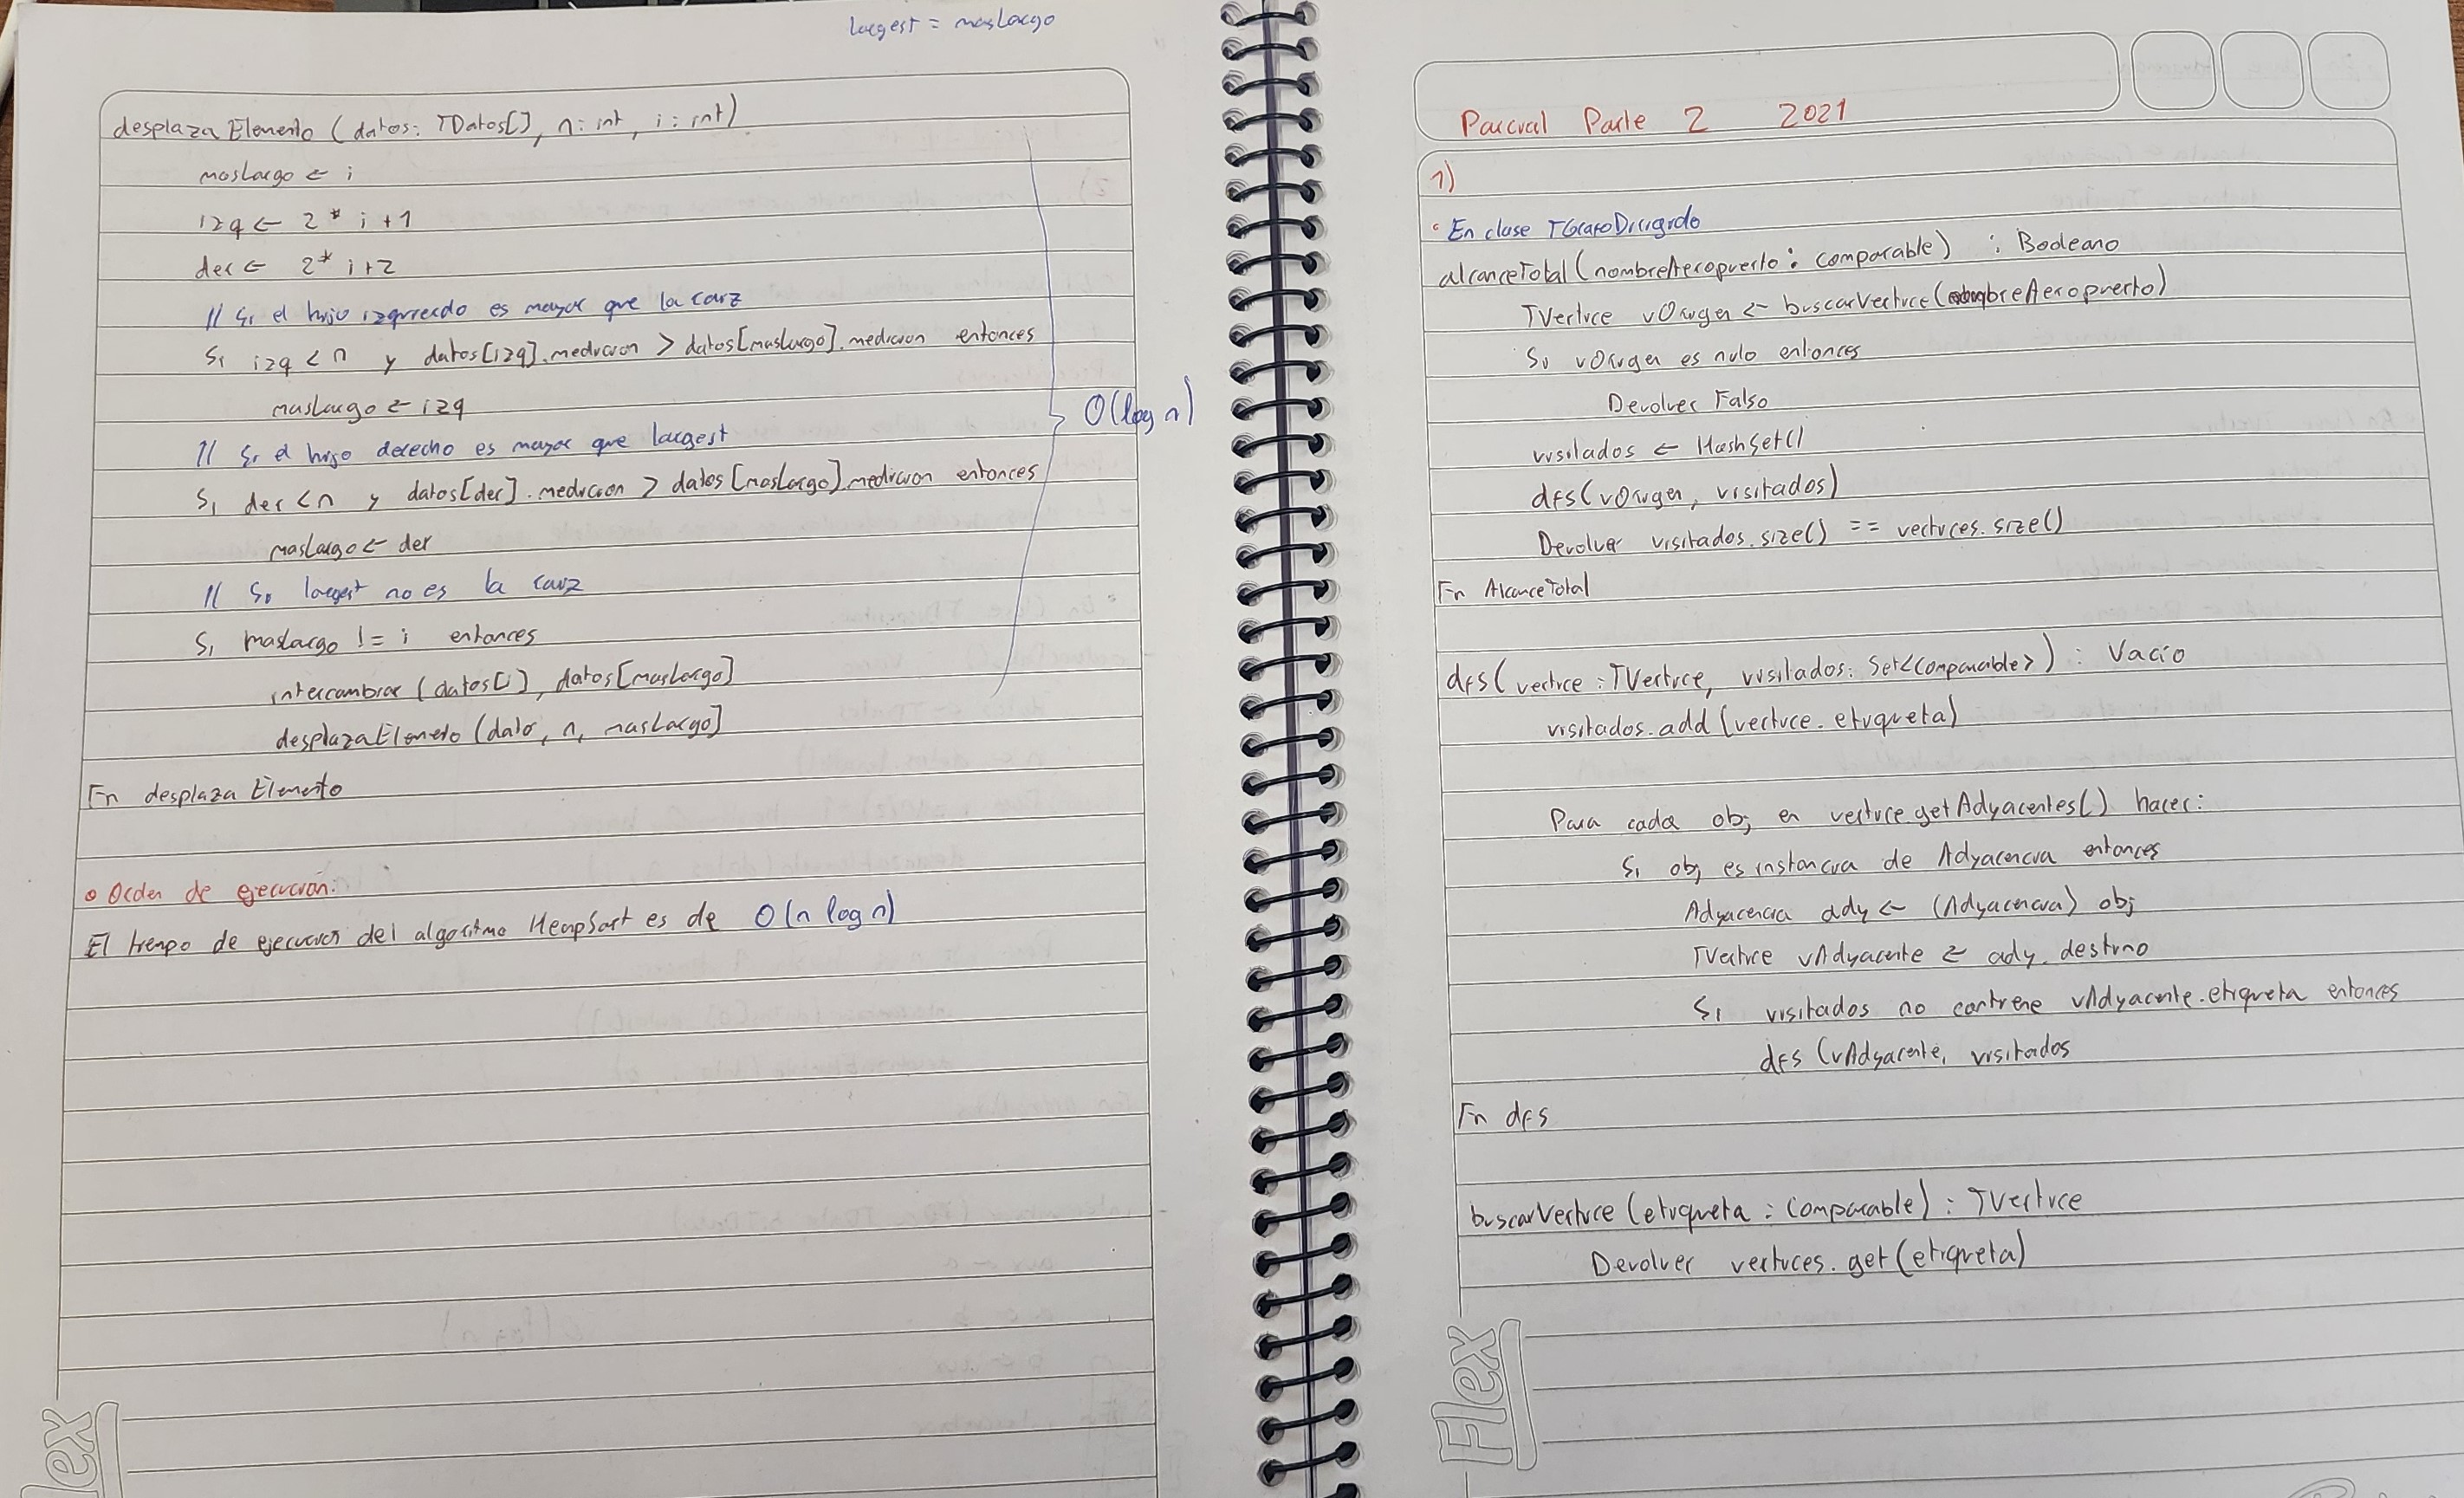 largest = masLargo
desplazaElemento (datos: TDatos[], n: int, i: int)
masLargo ← i
izq ← 2 * i + 1
der ← 2 * i + 2
// Si el hijo izquierdo es mayor que la raiz
Si izq < n y datos[izq].medicion > datos[masLargo].medicion entonces
masLargo ← izq
// Si el hijo derecho es mayor que largest
Si der < n y datos[der].medicion > datos[masLargo].medicion entonces
masLargo ← der
O(log n)
// Si largest no es la raiz
Si masLargo != i entonces
intercambiar (datos[i], datos[masLargo]
desplazaElemento (dato, n, masLargo]
Fin desplazaElemento
Orden de ejecucion:
El tiempo de ejecucion del algoritmo HeapSort es de O(n log n)
lex
Parcial Parte 2 2021
1)
En clase TGrafoDirigido
alcanceTotal (nombreAeropuerto: Comparable) : Booleano
TVertice vOrigen ← buscarVertice (nombreAeropuerto)
Si vOrigen es nulo entonces
Devolver Falso
visitados ← HashSet()
dfs (vOrigen, visitados)
Devolver visitados.size() == vertices.size()
Fin AlcanceTotal
dfs (vertice: TVertice, visitados: Set<Comparable>) : Vacio
visitados.add (vertice.etiqueta)
Para cada obj en vertice.getAdyacentes() hacer:
Si obj es instancia de Adyacencia entonces
Adyacencia ady ← (Adyacencia) obj
TVertice vAdyacente ← ady.destino
Si visitados no contiene vAdyacente.etiqueta entonces
dfs (vAdyacente, visitados
Fin dfs
buscarVertice (etiqueta: Comparable) : TVertice
Devolver vertices.get (etiqueta)
Flex